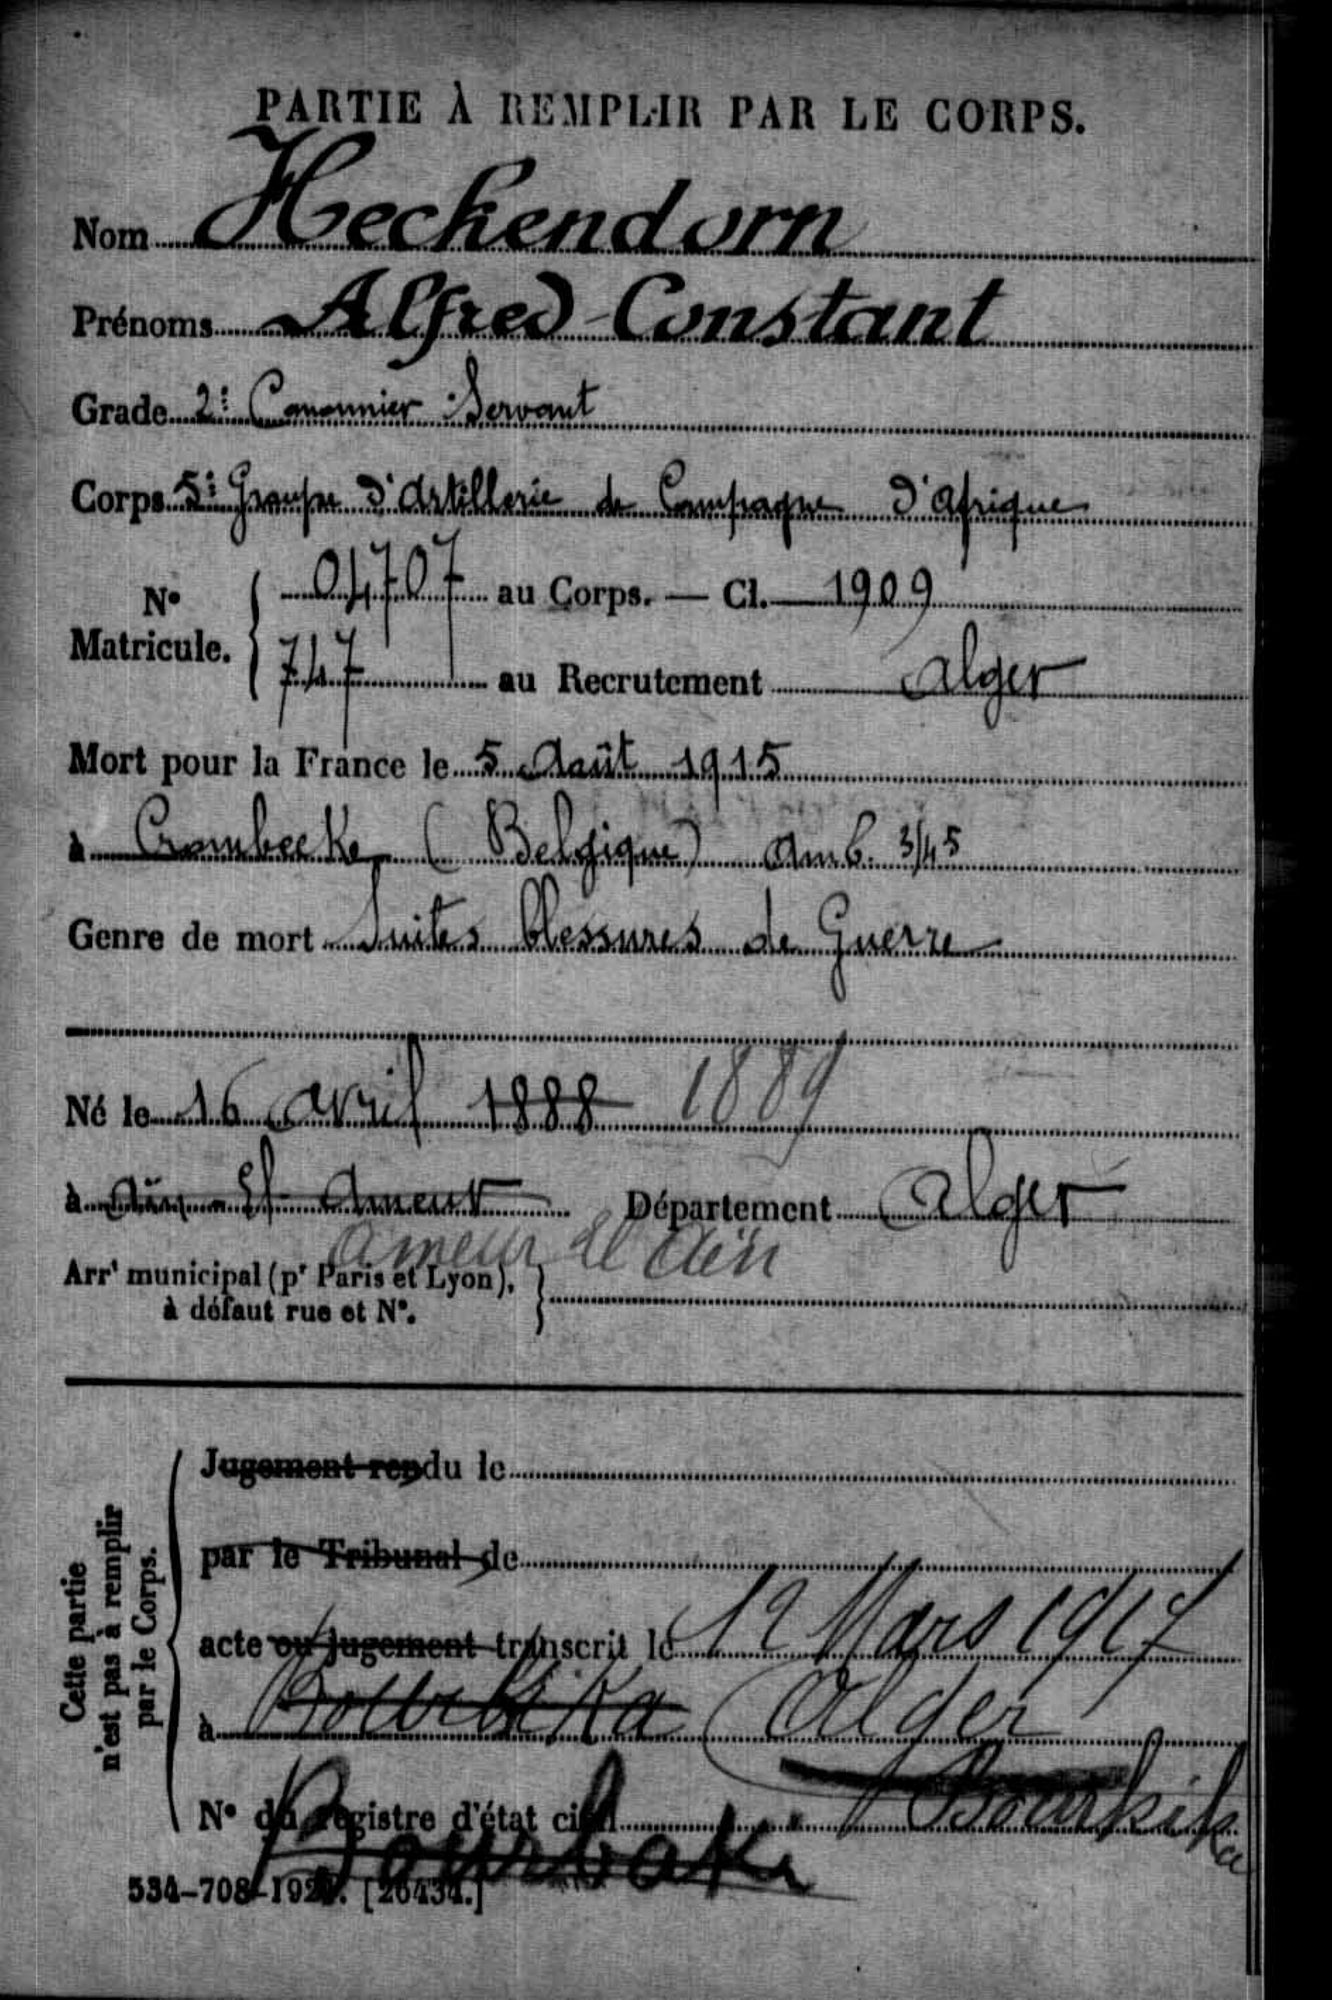 PARTIE À REMPLIR PAR LE CORPS.
Nom Heckendorn
Prénoms Alfred-Constant
Grade 2e Canonnier Servant
Corps 5e Groupe d'Artillerie de Campagne d'Afrique
No Matricule.
04707 au Corps. — Cl. 1909
747 au Recrutement Alger
Mort pour la France le 5 Août 1915
à Crombeeke (Belgique) Amb. 3/45
Genre de mort Suites blessures de Guerre
Né le 16 avril 1888 1889
à Aïn-El-Ameur Département Alger
Ameur el Aïn
Arrt municipal (pr Paris et Lyon),
à défaut rue et No.
Cette partie
n'est pas à remplir
par le Corps.
Jugement rendu le
par le Tribunal de
acte ou jugement transcrit le 12 Mars 1917
à Bourbika (Alger
Bourkika
No du registre d'état civil
Bourbaki
534-708-1921. [26434.]